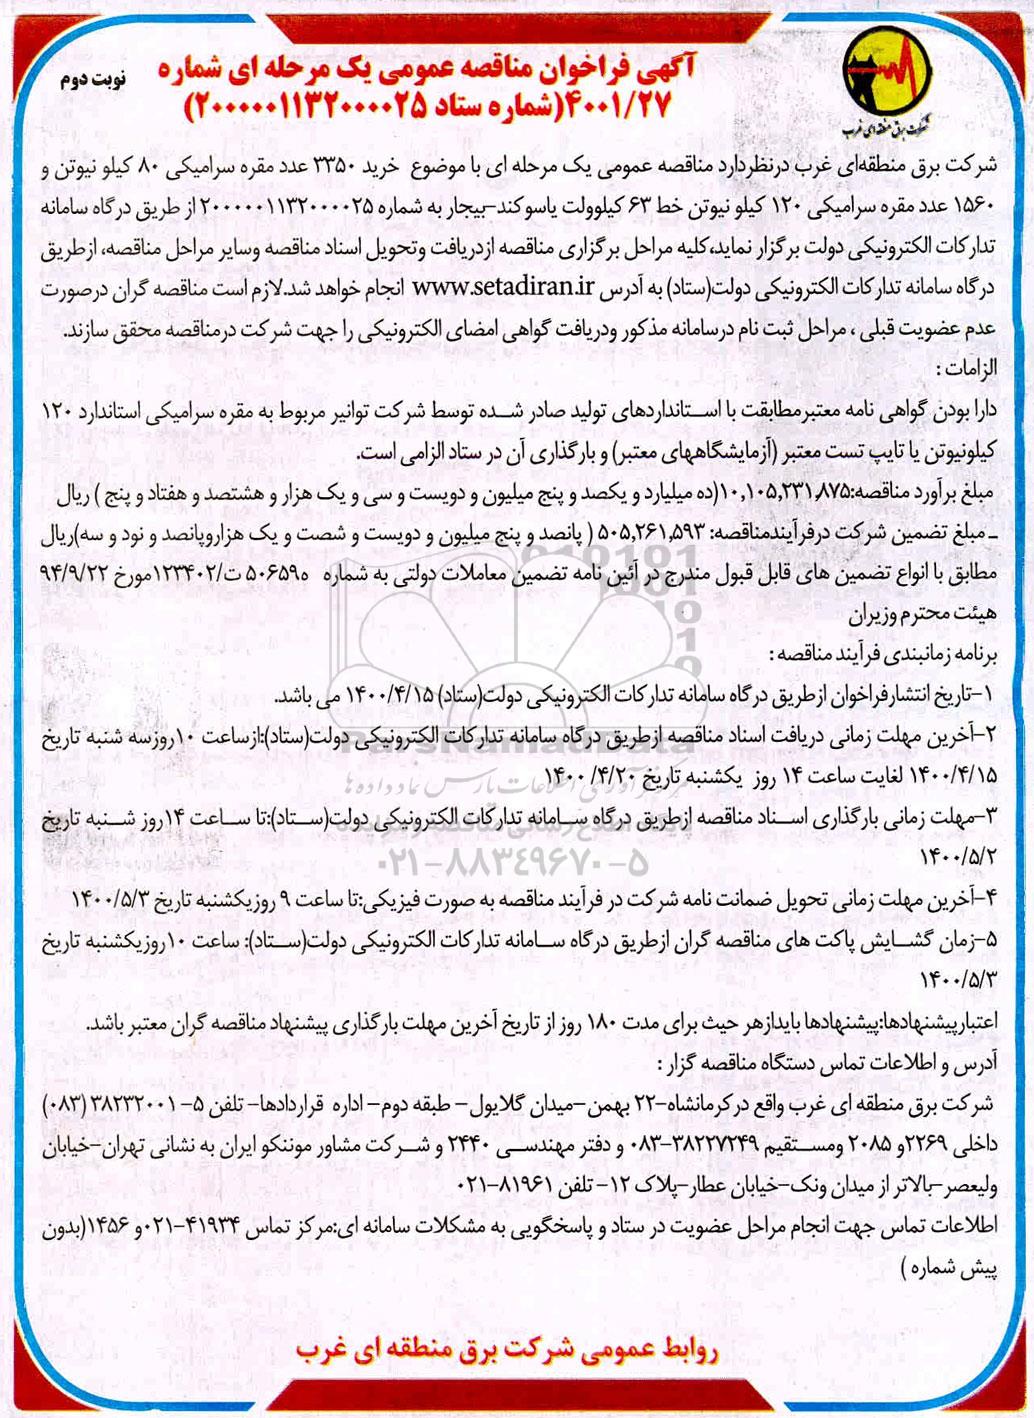 شرکت برق منطقه‌ای غرب
نوبت دوم
آگهی فراخوان مناقصه عمومی یک مرحله ای شماره
۴۰۰۱/۲۷(شماره ستاد ۲۰۰۰۰۰۱۱۳۲۰۰۰۰۲۵)
شرکت برق منطقه‌ای غرب درنظردارد مناقصه عمومی یک مرحله ای با موضوع خرید ۳۳۵۰ عدد مقره سرامیکی ۸۰ کیلو نیوتن و
۱۵۶۰ عدد مقره سرامیکی ۱۲۰ کیلو نیوتن خط ۶۳ کیلوولت یاسوکند-بیجار به شماره ۲۰۰۰۰۰۱۱۳۲۰۰۰۰۲۵ از طریق درگاه سامانه
تدارکات الکترونیکی دولت برگزار نماید،کلیه مراحل برگزاری مناقصه ازدریافت وتحویل اسناد مناقصه وسایر مراحل مناقصه، ازطریق
درگاه سامانه تدارکات الکترونیکی دولت(ستاد) به آدرس www.setadiran.ir انجام خواهد شد.لازم است مناقصه گران درصورت
عدم عضویت قبلی ، مراحل ثبت نام درسامانه مذکور ودریافت گواهی امضای الکترونیکی را جهت شرکت درمناقصه محقق سازند.
الزامات :
دارا بودن گواهی نامه معتبرمطابقت با استانداردهای تولید صادر شده توسط شرکت توانیر مربوط به مقره سرامیکی استاندارد ۱۲۰
کیلونیوتن یا تایپ تست معتبر (آزمایشگاههای معتبر) و بارگذاری آن در ستاد الزامی است.
مبلغ برآورد مناقصه:۱۰,۱۰۵,۲۳۱,۸۷۵(ده میلیارد و یکصد و پنج میلیون و دویست و سی و یک هزار و هشتصد و هفتاد و پنج ) ریال
ـ مبلغ تضمین شرکت درفرآیندمناقصه: ۵۰۵,۲۶۱,۵۹۳ ( پانصد و پنج میلیون و دویست و شصت و یک هزاروپانصد و نود و سه)ریال
مطابق با انواع تضمین های قابل قبول مندرج در آئین نامه تضمین معاملات دولتی به شماره ۵۰۶۵۹ه ت/۱۲۳۴۰۲مورخ ۹۴/۹/۲۲
هیئت محترم وزیران
برنامه زمانبندی فرآیند مناقصه :
۱-تاریخ انتشارفراخوان ازطریق درگاه سامانه تدارکات الکترونیکی دولت(ستاد) ۱۴۰۰/۴/۱۵ می باشد.
۲-آخرین مهلت زمانی دریافت اسناد مناقصه ازطریق درگاه سامانه تدارکات الکترونیکی دولت(ستاد):ازساعت ۱۰روزسه شنبه تاریخ
۱۴۰۰/۴/۱۵ لغایت ساعت ۱۴ روز یکشنبه تاریخ ۱۴۰۰/۴/۲۰
ParsNamadData
۳-مهلت زمانی بارگذاری اسناد مناقصه ازطریق درگاه سامانه تدارکات الکترونیکی دولت(ستاد):تا ساعت ۱۴روز شنبه تاریخ
۱۴۰۰/۵/۲
۰۲۱-۸۸۳۴۹۶۷۰-۵
۴-آخرین مهلت زمانی تحویل ضمانت نامه شرکت در فرآیند مناقصه به صورت فیزیکی:تا ساعت ۹ روزیکشنبه تاریخ ۱۴۰۰/۵/۳
۵-زمان گشایش پاکت های مناقصه گران ازطریق درگاه سامانه تدارکات الکترونیکی دولت(ستاد): ساعت ۱۰روزیکشنبه تاریخ
۱۴۰۰/۵/۳
اعتبارپیشنهادها:پیشنهادها بایدازهر حیث برای مدت ۱۸۰ روز از تاریخ آخرین مهلت بارگذاری پیشنهاد مناقصه گران معتبر باشد.
آدرس و اطلاعات تماس دستگاه مناقصه گزار :
شرکت برق منطقه ای غرب واقع درکرمانشاه-۲۲ بهمن -میدان گلایول- طبقه دوم- اداره قراردادها- تلفن ۵- ۳۸۲۳۲۰۰۱ (۰۸۳)
داخلی ۲۲۶۹و ۲۰۸۵ ومستقیم ۳۸۲۲۷۲۴۹-۰۸۳ و دفتر مهندسی ۲۴۴۰ و شرکت مشاور موننکو ایران به نشانی تهران-خیابان
ولیعصر-بالاتر از میدان ونک-خیابان عطار-پلاک ۱۲- تلفن ۸۱۹۶۱-۰۲۱
اطلاعات تماس جهت انجام مراحل عضویت در ستاد و پاسخگویی به مشکلات سامانه ای:مرکز تماس ۴۱۹۳۴-۰۲۱و ۱۴۵۶(بدون
پیش شماره )
روابط عمومی شرکت برق منطقه ای غرب